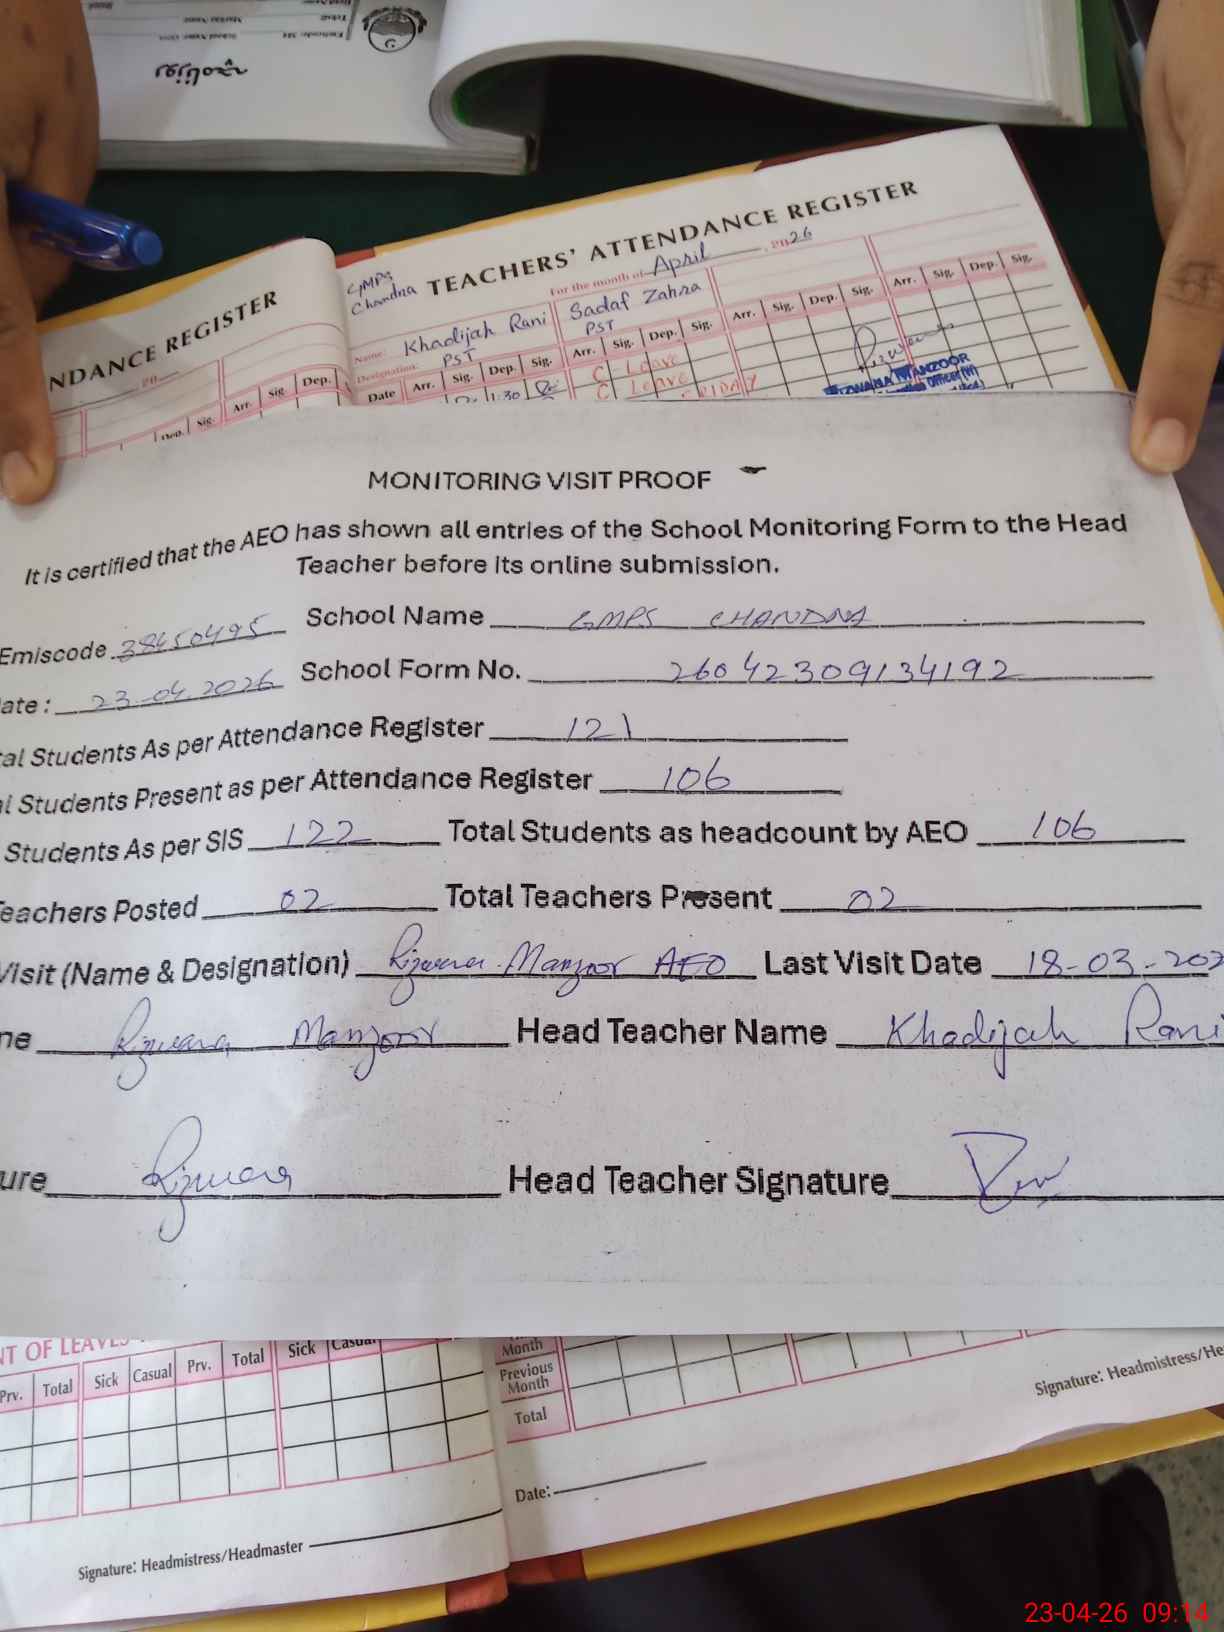 روزنامچہ
NDANCE REGISTER
20
Arr. Sig. Dep.
Dep. Sig.
GMPS
Chandna
TEACHERS' ATTENDANCE REGISTER
For the month of April 2026
Name: Khadijah Rani Sadaf Zahra
Designation: PST PST
Date Arr. Sig. Dep. Sig. Arr. Sig. Dep. Sig. Arr. Sig. Dep. Sig. Arr. Sig. Dep. Sig.
1:30 C Leave
C Leave
RIZWANA MANZOOR
MONITORING VISIT PROOF
It is certified that the AEO has shown all entries of the School Monitoring Form to the Head
Teacher before its online submission.
Emiscode 38450495 School Name GMPS CHANDNA
ate : 23-04-2026 School Form No. 26042309134192
al Students As per Attendance Register 121
l Students Present as per Attendance Register 106
Students As per SIS 122 Total Students as headcount by AEO 106
eachers Posted 02 Total Teachers Present 02
Visit (Name & Designation) Rizwana Manzoor AEO Last Visit Date 18-03-202
ne Rizwana Manzoor Head Teacher Name Khadijah Rani
ure Rizwana Head Teacher Signature
NT OF LEAVES
Prv. Total Sick Casual Prv. Total Sick Casual
Month
Previous
Month
Total
Signature: Headmistress/He
Date:
Signature: Headmistress/Headmaster
23-04-26 09:14